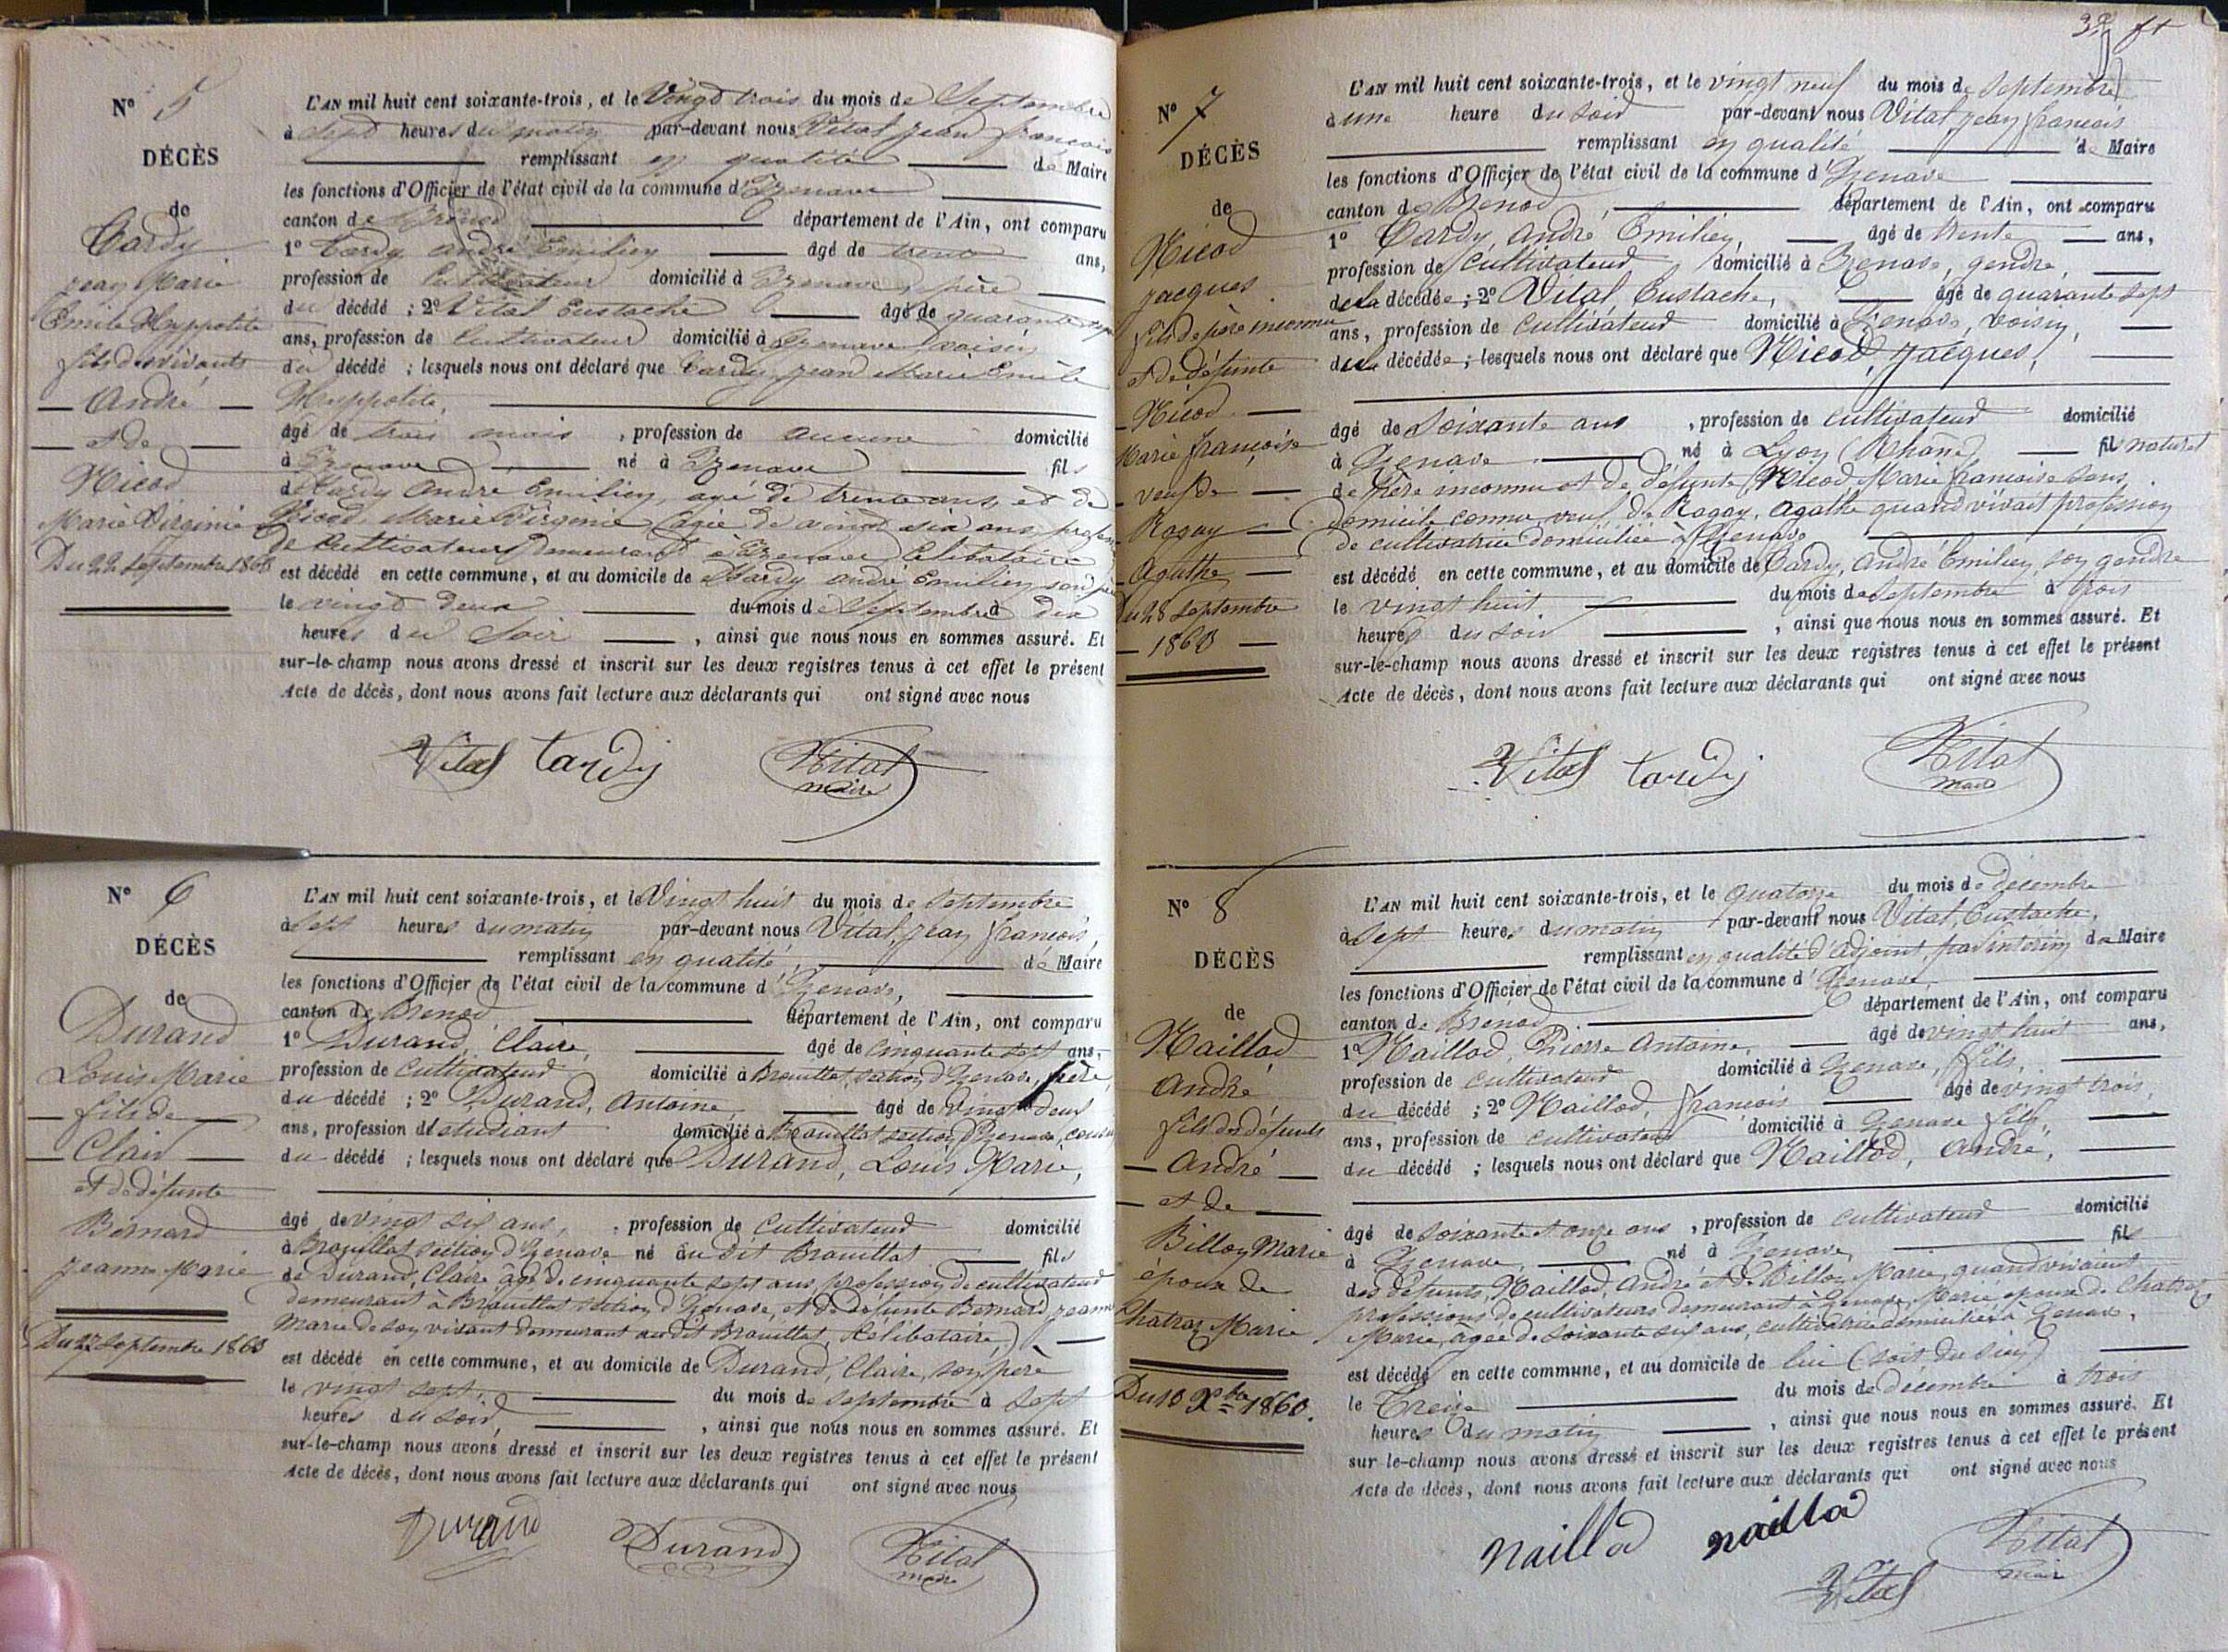 N° 5
DÉCÈS
de
Tardy
Jean Marie
Emile Hyppolite
fils des vivants
— André —
— et de —
Nicod
Marie Virginie
Du 22 Septembre 1863
L'AN mil huit cent soixante-trois, et le Vingt trois du mois de Septembre
à sept heures du matin par-devant nous Vital Jean François
remplissant en qualité de Maire
les fonctions d'Officier de l'état civil de la commune d'Izenave
canton de Brenod département de l'Ain, ont comparu
1° Tardy André Emilien âgé de trente ans,
profession de Cultivateur domicilié à Izenave, père
du décédé ; 2° Vital Eustache âgé de quarante sept
ans, profession de Cultivateur domicilié à Izenave, voisin
du décédé ; lesquels nous ont déclaré que Tardy, Jean Marie Emile
Hyppolite,
âgé de trois mois , profession de aucune domicilié
à Izenave né à Izenave fils
de Tardy André Emilien, agé de trente ans, et de
Nicod, Marie Virginie agée de vingt six ans,
de Cultivateurs demeurant à Izenave Célibataire
est décédé en cette commune, et au domicile de Tardy André Emilien son père
le vingt deux du mois de Septembre à dix
heures du Soir , ainsi que nous nous en sommes assuré. Et
sur-le-champ nous avons dressé et inscrit sur les deux registres tenus à cet effet le présent
Acte de décès, dont nous avons fait lecture aux déclarants qui ont signé avec nous
Vital tardy Vital
maire
N° 6
DÉCÈS
de
Durand
Louis Marie
— fils de —
— Clair —
et de défunte
Bernard
Jeanne Marie
Du 27 Septembre 1863
L'AN mil huit cent soixante-trois, et le Vingt huit du mois de Septembre
à sept heures du matin par-devant nous Vital, Jean François,
remplissant en qualité, de Maire
les fonctions d'Officier de l'état civil de la commune d'Izenave,
canton de Brenod département de l'Ain, ont comparu
1° Durand, Claire, âgé de cinquante sept ans,
profession de Cultivateur domicilié à Brouillat, section d'Izenave, père
du décédé ; 2° Durand, Antoine, âgé de vingt deux
ans, profession d'etudiant domicilié à Brouillat section d'Izenave, cousin
du décédé ; lesquels nous ont déclaré que Durand, Louis Marie,
âgé de vingt six ans, , profession de Cultivateur domicilié
à Brouillat section d'Izenave né au dit Brouillat fils
de Durand, Claire âgé de cinquante sept ans profession de cultivateur
demeurant à Brouillat section d'Izenave, et de défunte Bernard, Jeanne
Marie de son vivant demeurant au dit Brouillat, (Célibataire,)
est décédé en cette commune, et au domicile de Durand, Claire, son père
le vingt sept, du mois de Septembre à sept
heures du soir, , ainsi que nous nous en sommes assuré. Et
sur-le-champ nous avons dressé et inscrit sur les deux registres tenus à cet effet le présent
Acte de décès, dont nous avons fait lecture aux déclarants qui ont signé avec nous
Durand Durand Vital
maire
N° 7
DÉCÈS
de
Nicod
Jacques
fils de père inconnu
et de défunte
— Nicod —
Marie françoise
— veuf de —
— Ragay —
— Agathe —
Du 28 Septembre
— 1863 —
L'AN mil huit cent soixante-trois, et le vingt neuf du mois de Septembre
à une heure du soir par-devant nous Vital Jean François
remplissant en qualité de Maire
les fonctions d'Officier de l'état civil de la commune d'Izenave
canton de Brenod, département de l'Ain, ont comparu
1° Tardy, André Emilien, âgé de trente ans,
profession de Cultivateur domicilié à Izenave, gendre,
de la décédée ; 2° Vital, Eustache, âgé de quarante sept
ans, profession de Cultivateur domicilié à Izenave, voisin,
de la décédée ; lesquels nous ont déclaré que Nicod, Jacques,
âgé de Soixante ans , profession de Cultivateur domicilié
à Izenave né à Lyon (Rhône) fil naturel
de père inconnu et de défunte (Nicod, Marie françoise sans
domicile connu, veuf de Ragay, Agathe quand vivait profession
de cultivatrice domiciliée à Izenave
est décédé en cette commune, et au domicile de Tardy, André Emilien, son gendre
le vingt huit du mois de Septembre à trois
heures du soir , ainsi que nous nous en sommes assuré. Et
sur-le-champ nous avons dressé et inscrit sur les deux registres tenus à cet effet le présent
Acte de décès, dont nous avons fait lecture aux déclarants qui ont signé avec nous
Vital tardy Vital
maire
N° 8
DÉCÈS
de
Maillod
André
fils des défunts
— André —
— et de —
Billon Marie
époux de
Chatraz Marie
Du 13 Xbre 1863.
L'AN mil huit cent soixante-trois, et le quatorze du mois de décembre
à Sept heures du matin par-devant nous Vital, Eustache,
remplissant en qualité d'adjoint, par intérim de Maire
les fonctions d'Officier de l'état civil de la commune d'Izenave,
canton de Brenod département de l'Ain, ont comparu
1° Maillod, Pierre Antoine, âgé de vingt huit ans,
profession de cultivateur domicilié à Izenave, fils,
du décédé ; 2° Maillod, François âgé de vingt trois,
ans, profession de cultivateur domicilié à Izenave fils,
du décédé ; lesquels nous ont déclaré que Maillod, André,
âgé de Soixante et onze ans , profession de cultivateur domicilié
à Izenave, né à Izenave, fils
des défunts, Maillod, André et de Billon, Marie, quand vivaient
professions de cultivateurs demeurant à Izenave, Marié époux de Chatraz
Marie, âgée de soixante six ans, cultivatrice domiciliée à Izenave,
est décédé en cette commune, et au domicile de lui (soit du sien)
le Treize du mois de décembre à trois
heures du matin , ainsi que nous nous en sommes assuré. Et
sur-le-champ nous avons dressé et inscrit sur les deux registres tenus à cet effet le présent
Acte de décès, dont nous avons fait lecture aux déclarants qui ont signé avec nous
maillod maillod Vital
Vital maire